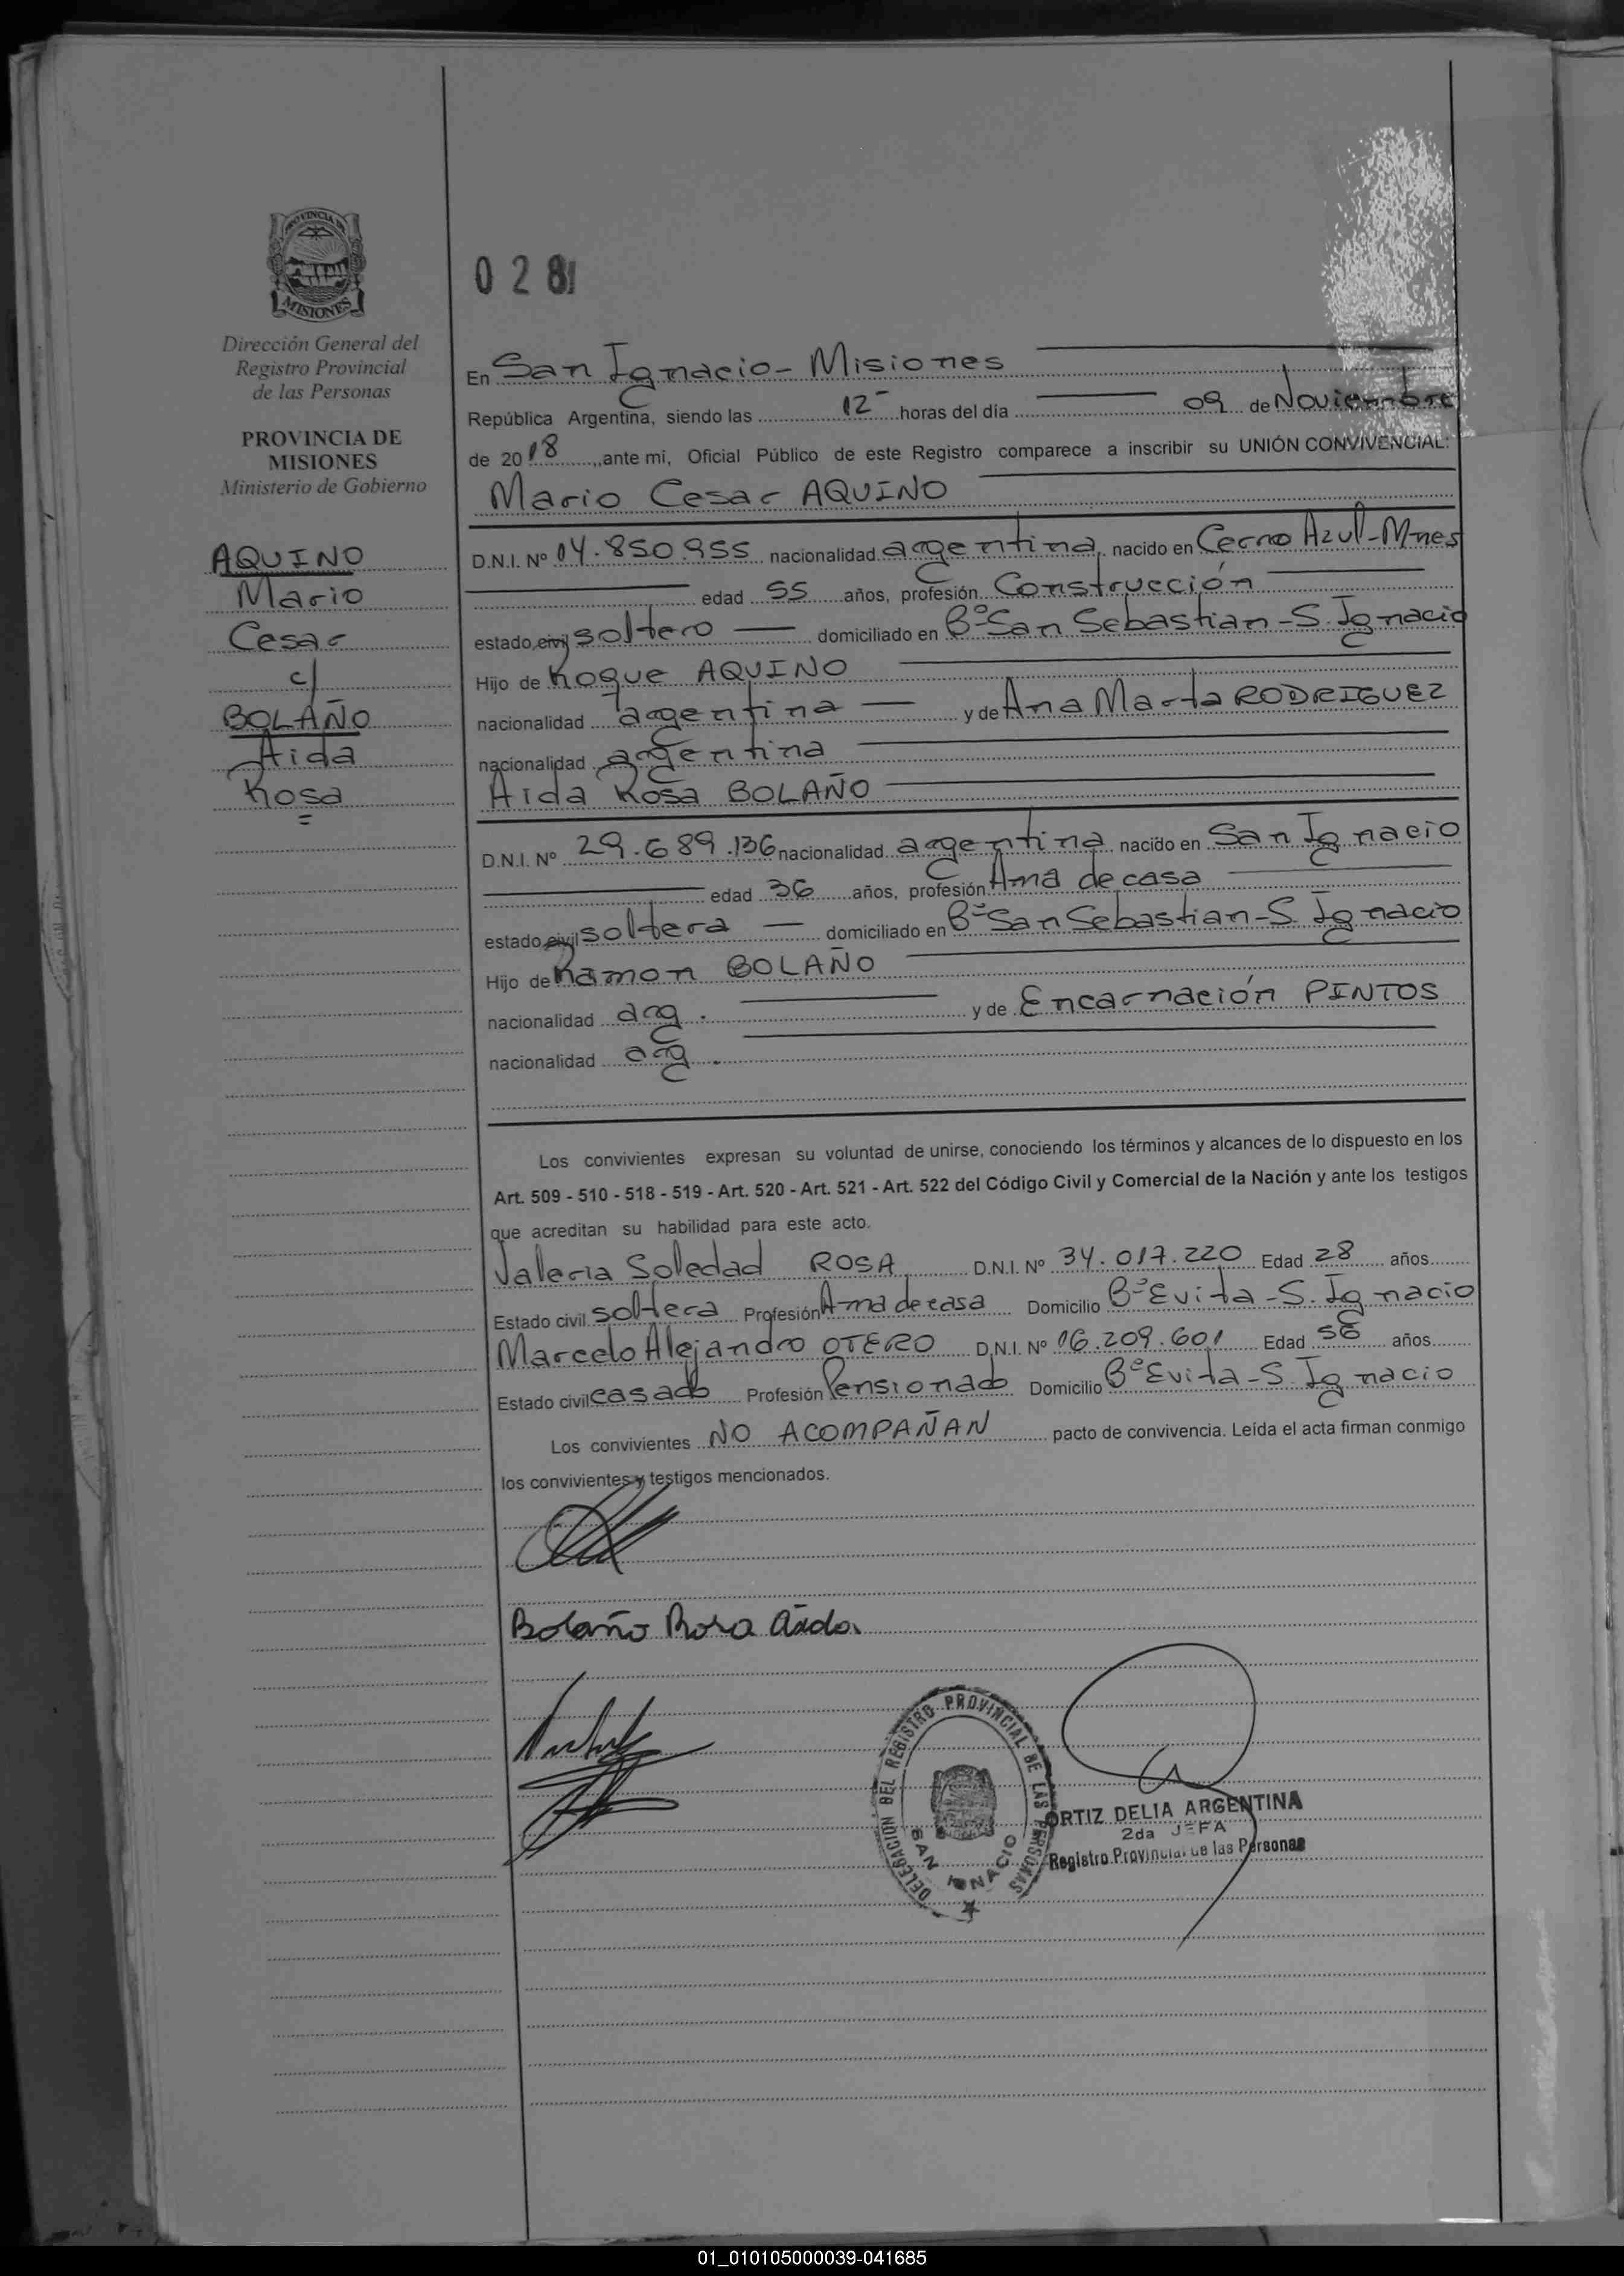 PROVINCIA DE
MISIONES
Dirección General del
Registro Provincial
de las Personas
PROVINCIA DE
MISIONES
Ministerio de Gobierno
AQUINO
Mario
Cesar
c/
BOLAÑO
Aida
Rosa
=
028
En San Ignacio - Misiones
República Argentina, siendo las 12 horas del día 09 de Noviembre
de 2018, ante mí, Oficial Público de este Registro comparece a inscribir su UNIÓN CONVIVENCIAL:
Mario Cesar AQUINO
D.N.I. Nº 14.850.955 nacionalidad argentina, nacido en Cerro Azul - Mnes
edad 55 años, profesión Construcción
estado civil soltero — domiciliado en Bº San Sebastian - S. Ignacio
Hijo de Roque AQUINO
nacionalidad argentina — y de Ana Marta RODRIGUEZ
nacionalidad argentina
Aida Rosa BOLAÑO
D.N.I. Nº 29.689.136 nacionalidad argentina nacido en San Ignacio
edad 36 años, profesión Ama de casa
estado civil soltera — domiciliado en Bº San Sebastian - S. Ignacio
Hijo de Ramon BOLAÑO
nacionalidad arg. y de Encarnación PINTOS
nacionalidad arg.
Los convivientes expresan su voluntad de unirse, conociendo los términos y alcances de lo dispuesto en los
Art. 509 - 510 - 518 - 519 - Art. 520 - Art. 521 - Art. 522 del Código Civil y Comercial de la Nación y ante los testigos
que acreditan su habilidad para este acto.
Valeria Soledad ROSA D.N.I. Nº 34.017.220 Edad 28 años
Estado civil soltera Profesión Ama de casa Domicilio Bº Evita - S. Ignacio
Marcelo Alejandro OTERO D.N.I. Nº 16.209.601 Edad 56 años
Estado civil casado Profesión Pensionado Domicilio Bº Evita - S. Ignacio
Los convivientes NO ACOMPAÑAN pacto de convivencia. Leída el acta firman conmigo
los convivientes y testigos mencionados.
Bolaño Rosa Aida.
DELEGACION DEL REGISTRO PROVINCIAL DE LAS PERSONAS
SAN IGNACIO
ORTIZ DELIA ARGENTINA
2da JEFA
Registro Provincial de las Personas
01_010105000039-041685